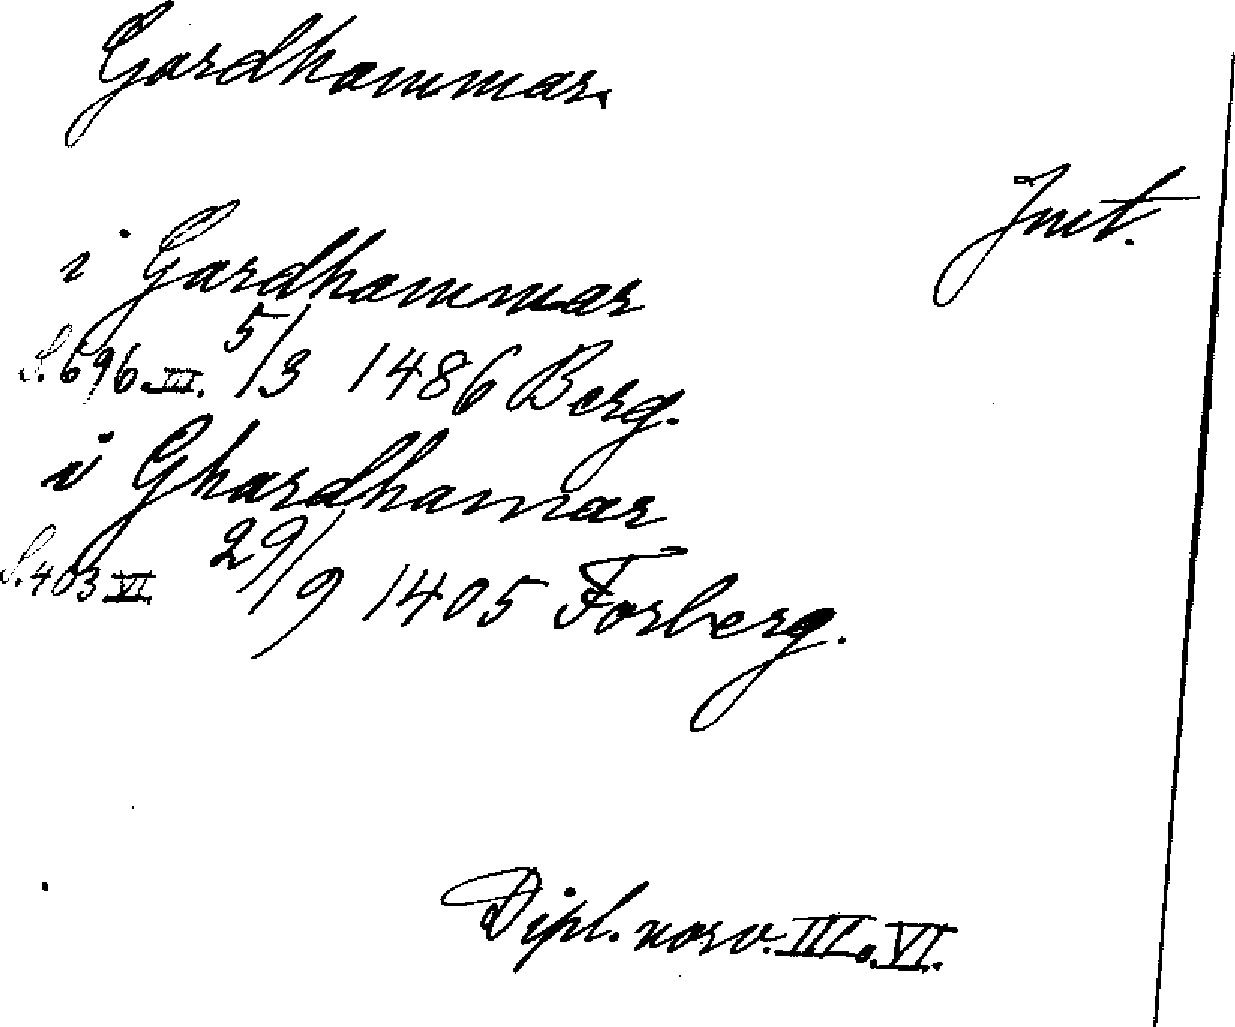 Gardhammar.
Jmt.
i Gardhammar
S. 696. III. 5/3 1486 Berg.
i Ghardhamar
S. 403 VI 29/9 1405 Forberg.
Dipl. norv. III o. VI.